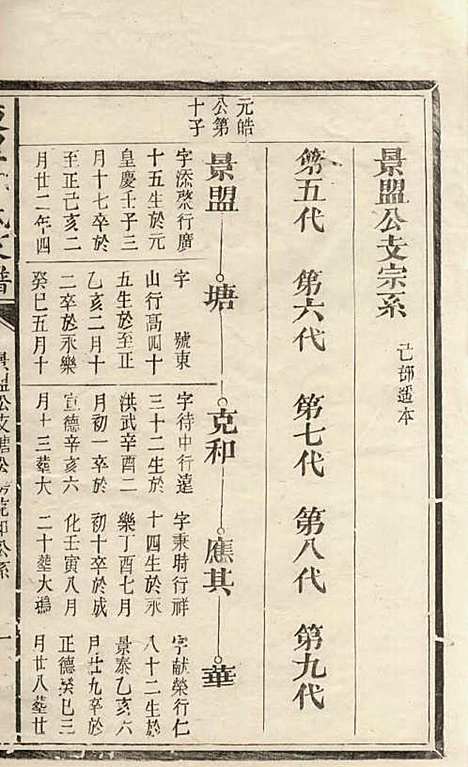 景盟公支宗系
己部遥本
第五代 第六代 第七代 第八代 第九代
元皓
公第
十子
景盟
塘
克和
應其
華
字添啓行廣
十五生於元
皇慶壬子三
月十七卒於
至正己亥二
月廿二年四
字 號東
山行高四十
五生於至正
乙亥二月十
二卒於永樂
癸巳五月十
字待中行遠
三十二生於
洪武辛酉二
月初一卒於
宣德辛亥六
月十三葬大
字秉時行祥
十四生於永
樂丁酉七月
初十卒於成
化壬寅八月
二十葬大塢
字献榮行仁
八十二生於
景泰乙亥六
月廿九卒於
正德癸巳三
月廿八葬廿
氏支譜
景盟公支塘公房克和公系
一